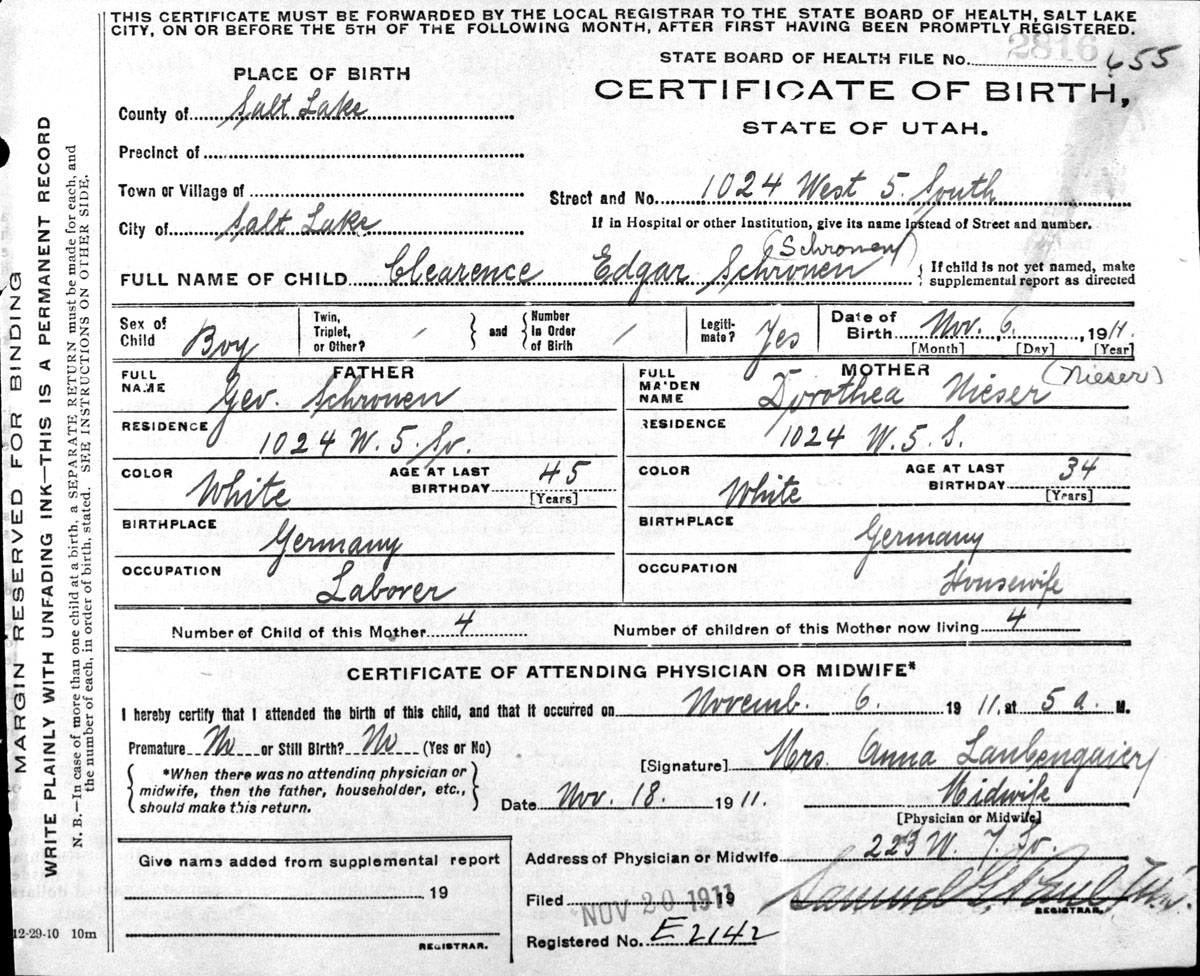 THIS CERTIFICATE MUST BE FORWARDED BY THE LOCAL REGISTRAR TO THE STATE BOARD OF HEALTH, SALT LAKE
CITY, ON OR BEFORE THE 5TH OF THE FOLLOWING MONTH, AFTER FIRST HAVING BEEN PROMPTLY REGISTERED.
2816
STATE BOARD OF HEALTH FILE No. 655
PLACE OF BIRTH
CERTIFICATE OF BIRTH,
STATE OF UTAH.
County of Salt Lake
Precinct of
Town or Village of
Street and No. 1024 West 5. South
City of Salt Lake
If in Hospital or other Institution, give its name instead of Street and number.
(Schronen)
FULL NAME OF CHILD Clearence Edgar Schronen
{ If child is not yet named, make
supplemental report as directed
Sex of Child Boy
Twin, Triplet, or Other? /
} and {
Number In Order of Birth /
Legiti-mate? Yes
Date of Birth Nov. 6, 1911.
[Month] [Day] [Year]
FATHER
FULL NAME Geo. Schronen
MOTHER
FULL MAIDEN NAME Dorothea Nieser (Nieser)
RESIDENCE 1024 W. 5. So.
RESIDENCE 1024 W. 5. S.
COLOR White
AGE AT LAST BIRTHDAY 45 [Years]
COLOR White
AGE AT LAST BIRTHDAY 34 [Years]
BIRTHPLACE Germany
BIRTHPLACE Germany
OCCUPATION Laborer
OCCUPATION Housewife
Number of Child of this Mother 4
Number of children of this Mother now living 4
CERTIFICATE OF ATTENDING PHYSICIAN OR MIDWIFE*
I hereby certify that I attended the birth of this child, and that it occurred on Novemb. 6. 1911. at 5 a. M.
Premature No or Still Birth? No (Yes or No)
[Signature] Mrs. Anna Laubengaier
{ *When there was no attending physician or
midwife, then the father, householder, etc.,
should make this return. }
Date Nov. 18. 1911.
Midwife
[Physician or Midwife]
Address of Physician or Midwife 223 W. 7. So.
Give name added from supplemental report
19
REGISTRAR.
Filed NOV 20 1911 19
Samuel G. Paul
REGISTRAR.
Registered No. E2142
12-29-10 10m
MARGIN RESERVED FOR BINDING
WRITE PLAINLY WITH UNFADING INK—THIS IS A PERMANENT RECORD
N. B.—In case of more than one child at a birth, a SEPARATE RETURN must be made for each, and
the number of each, in order of birth, stated. SEE INSTRUCTIONS ON OTHER SIDE.